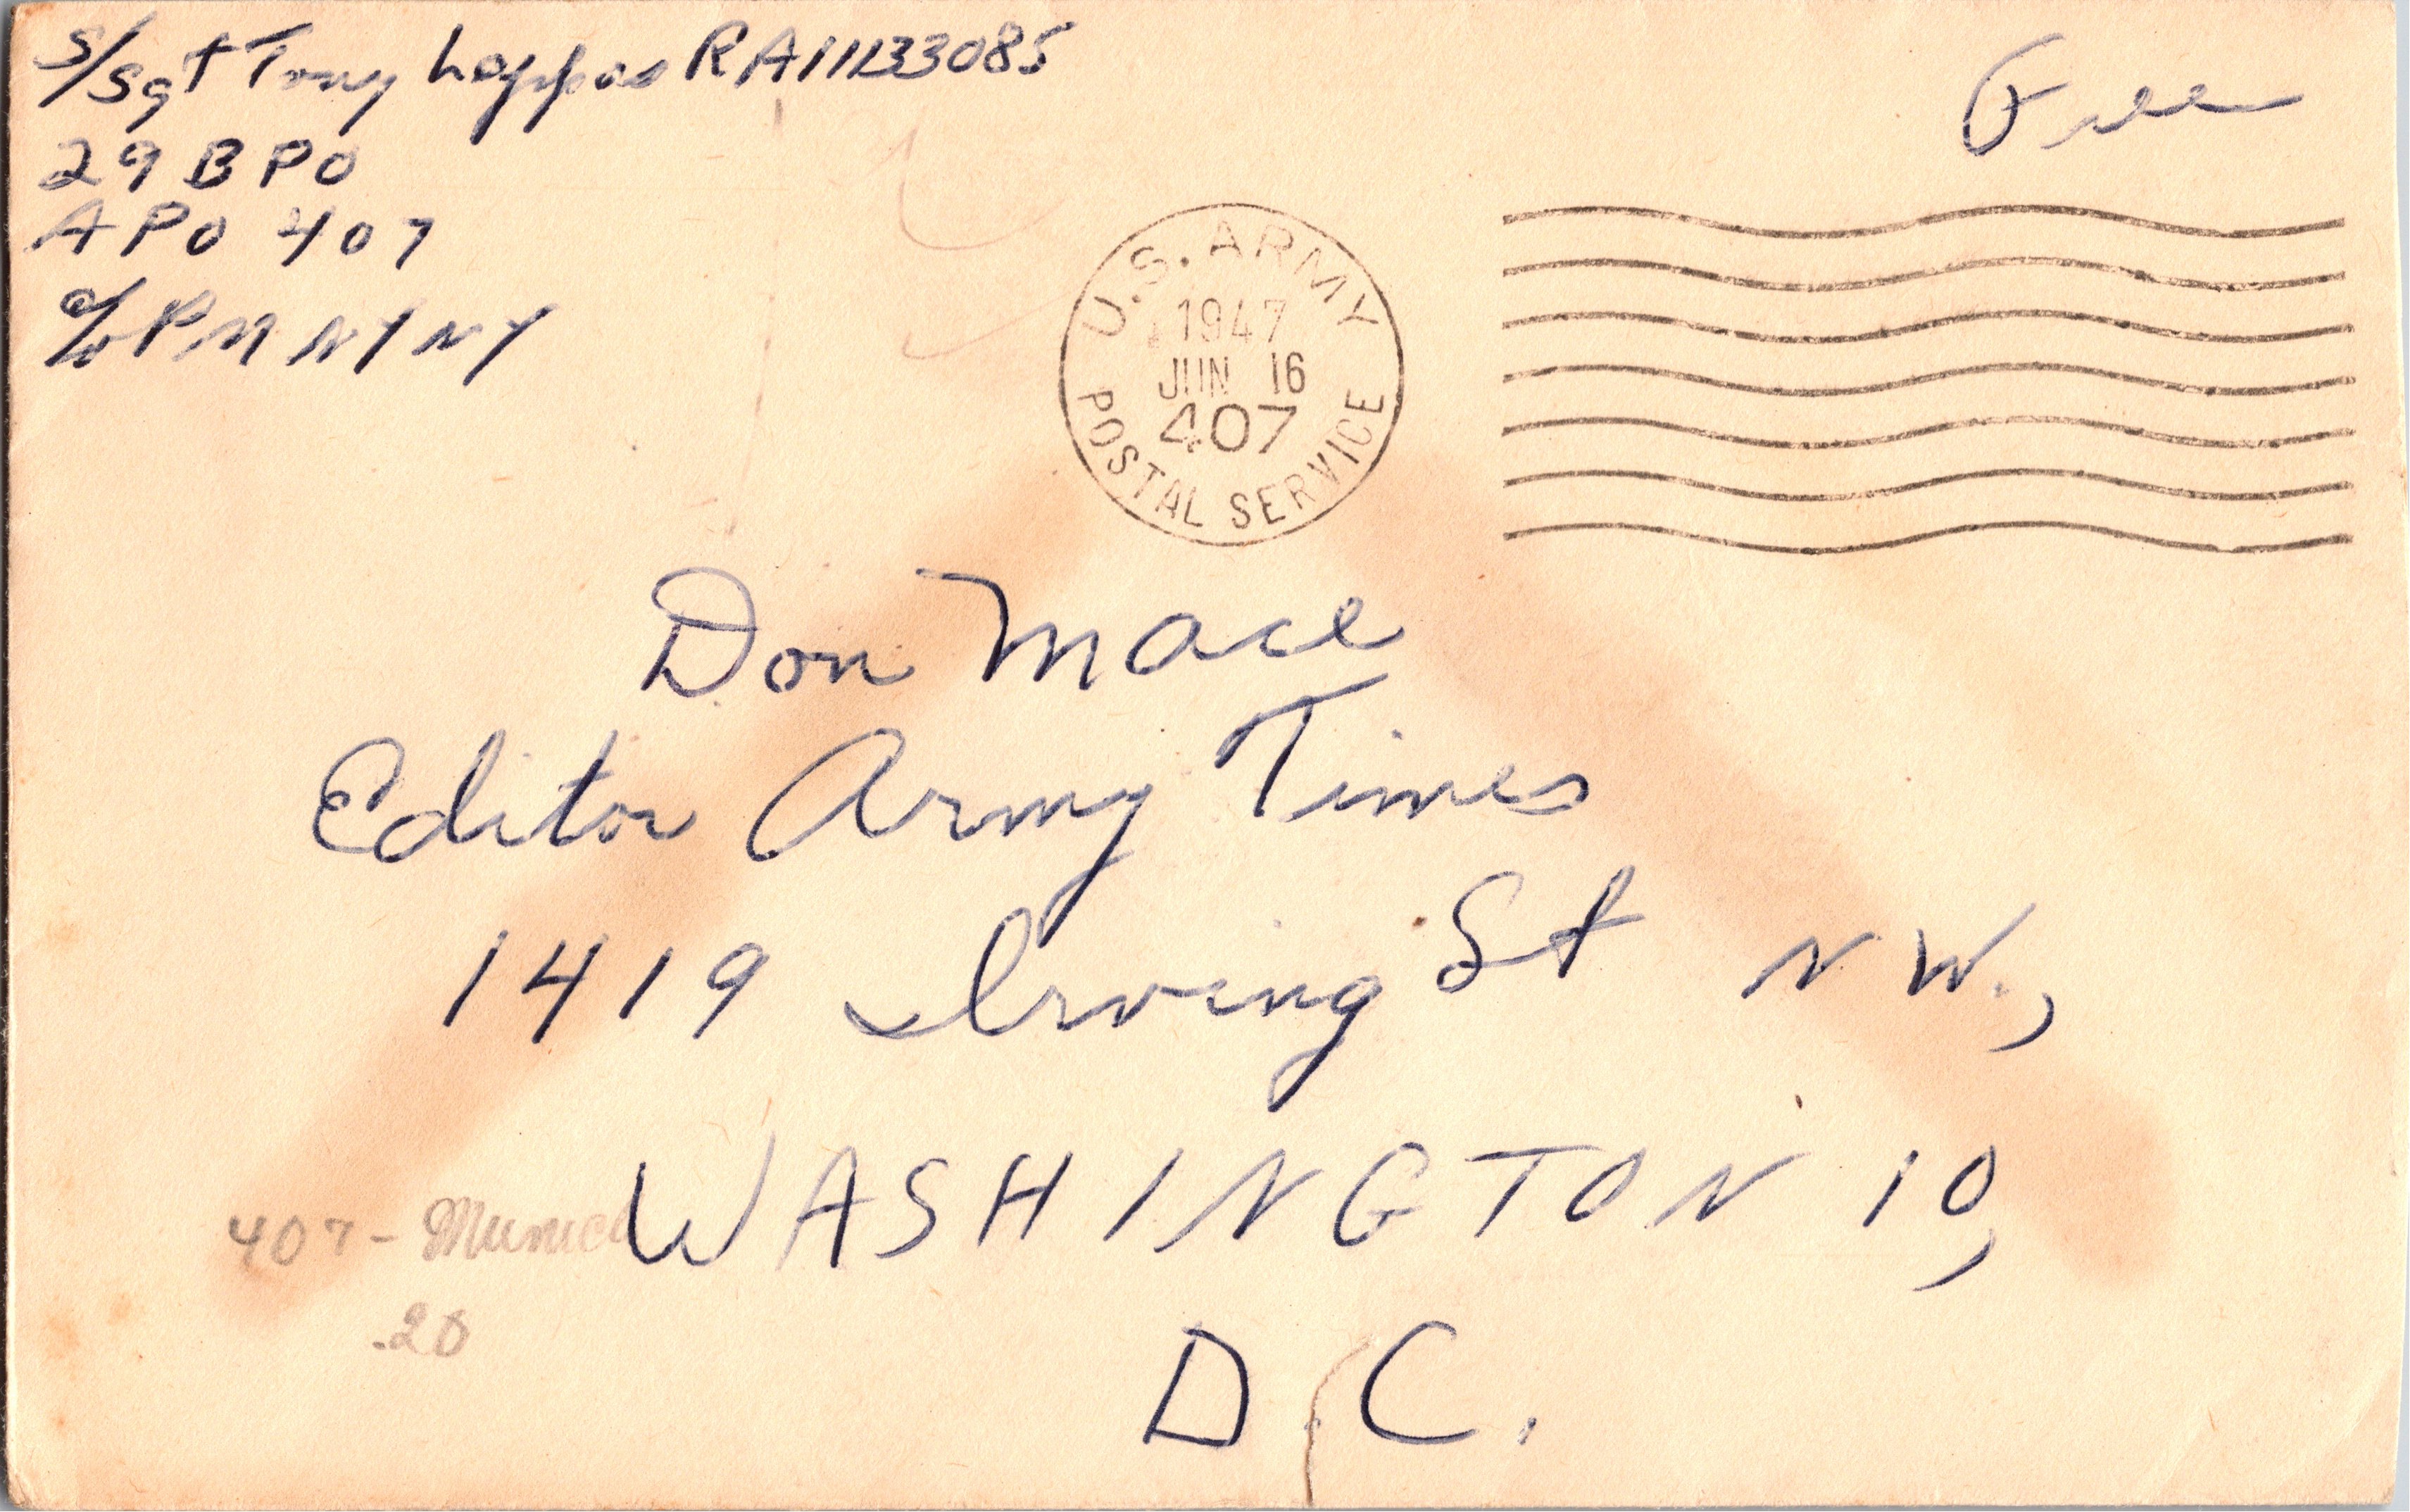 S/Sgt Tony Lappas RA11133085
29 BPO
APO 407
c/o PM NY NY
Free
U.S. ARMY
1947
JUN 16
407
POSTAL SERVICE
Don Mace
Editor Army Times
1419 Irving St N.W.,
WASHINGTON 10,
D.C.
407 - Munich
.20